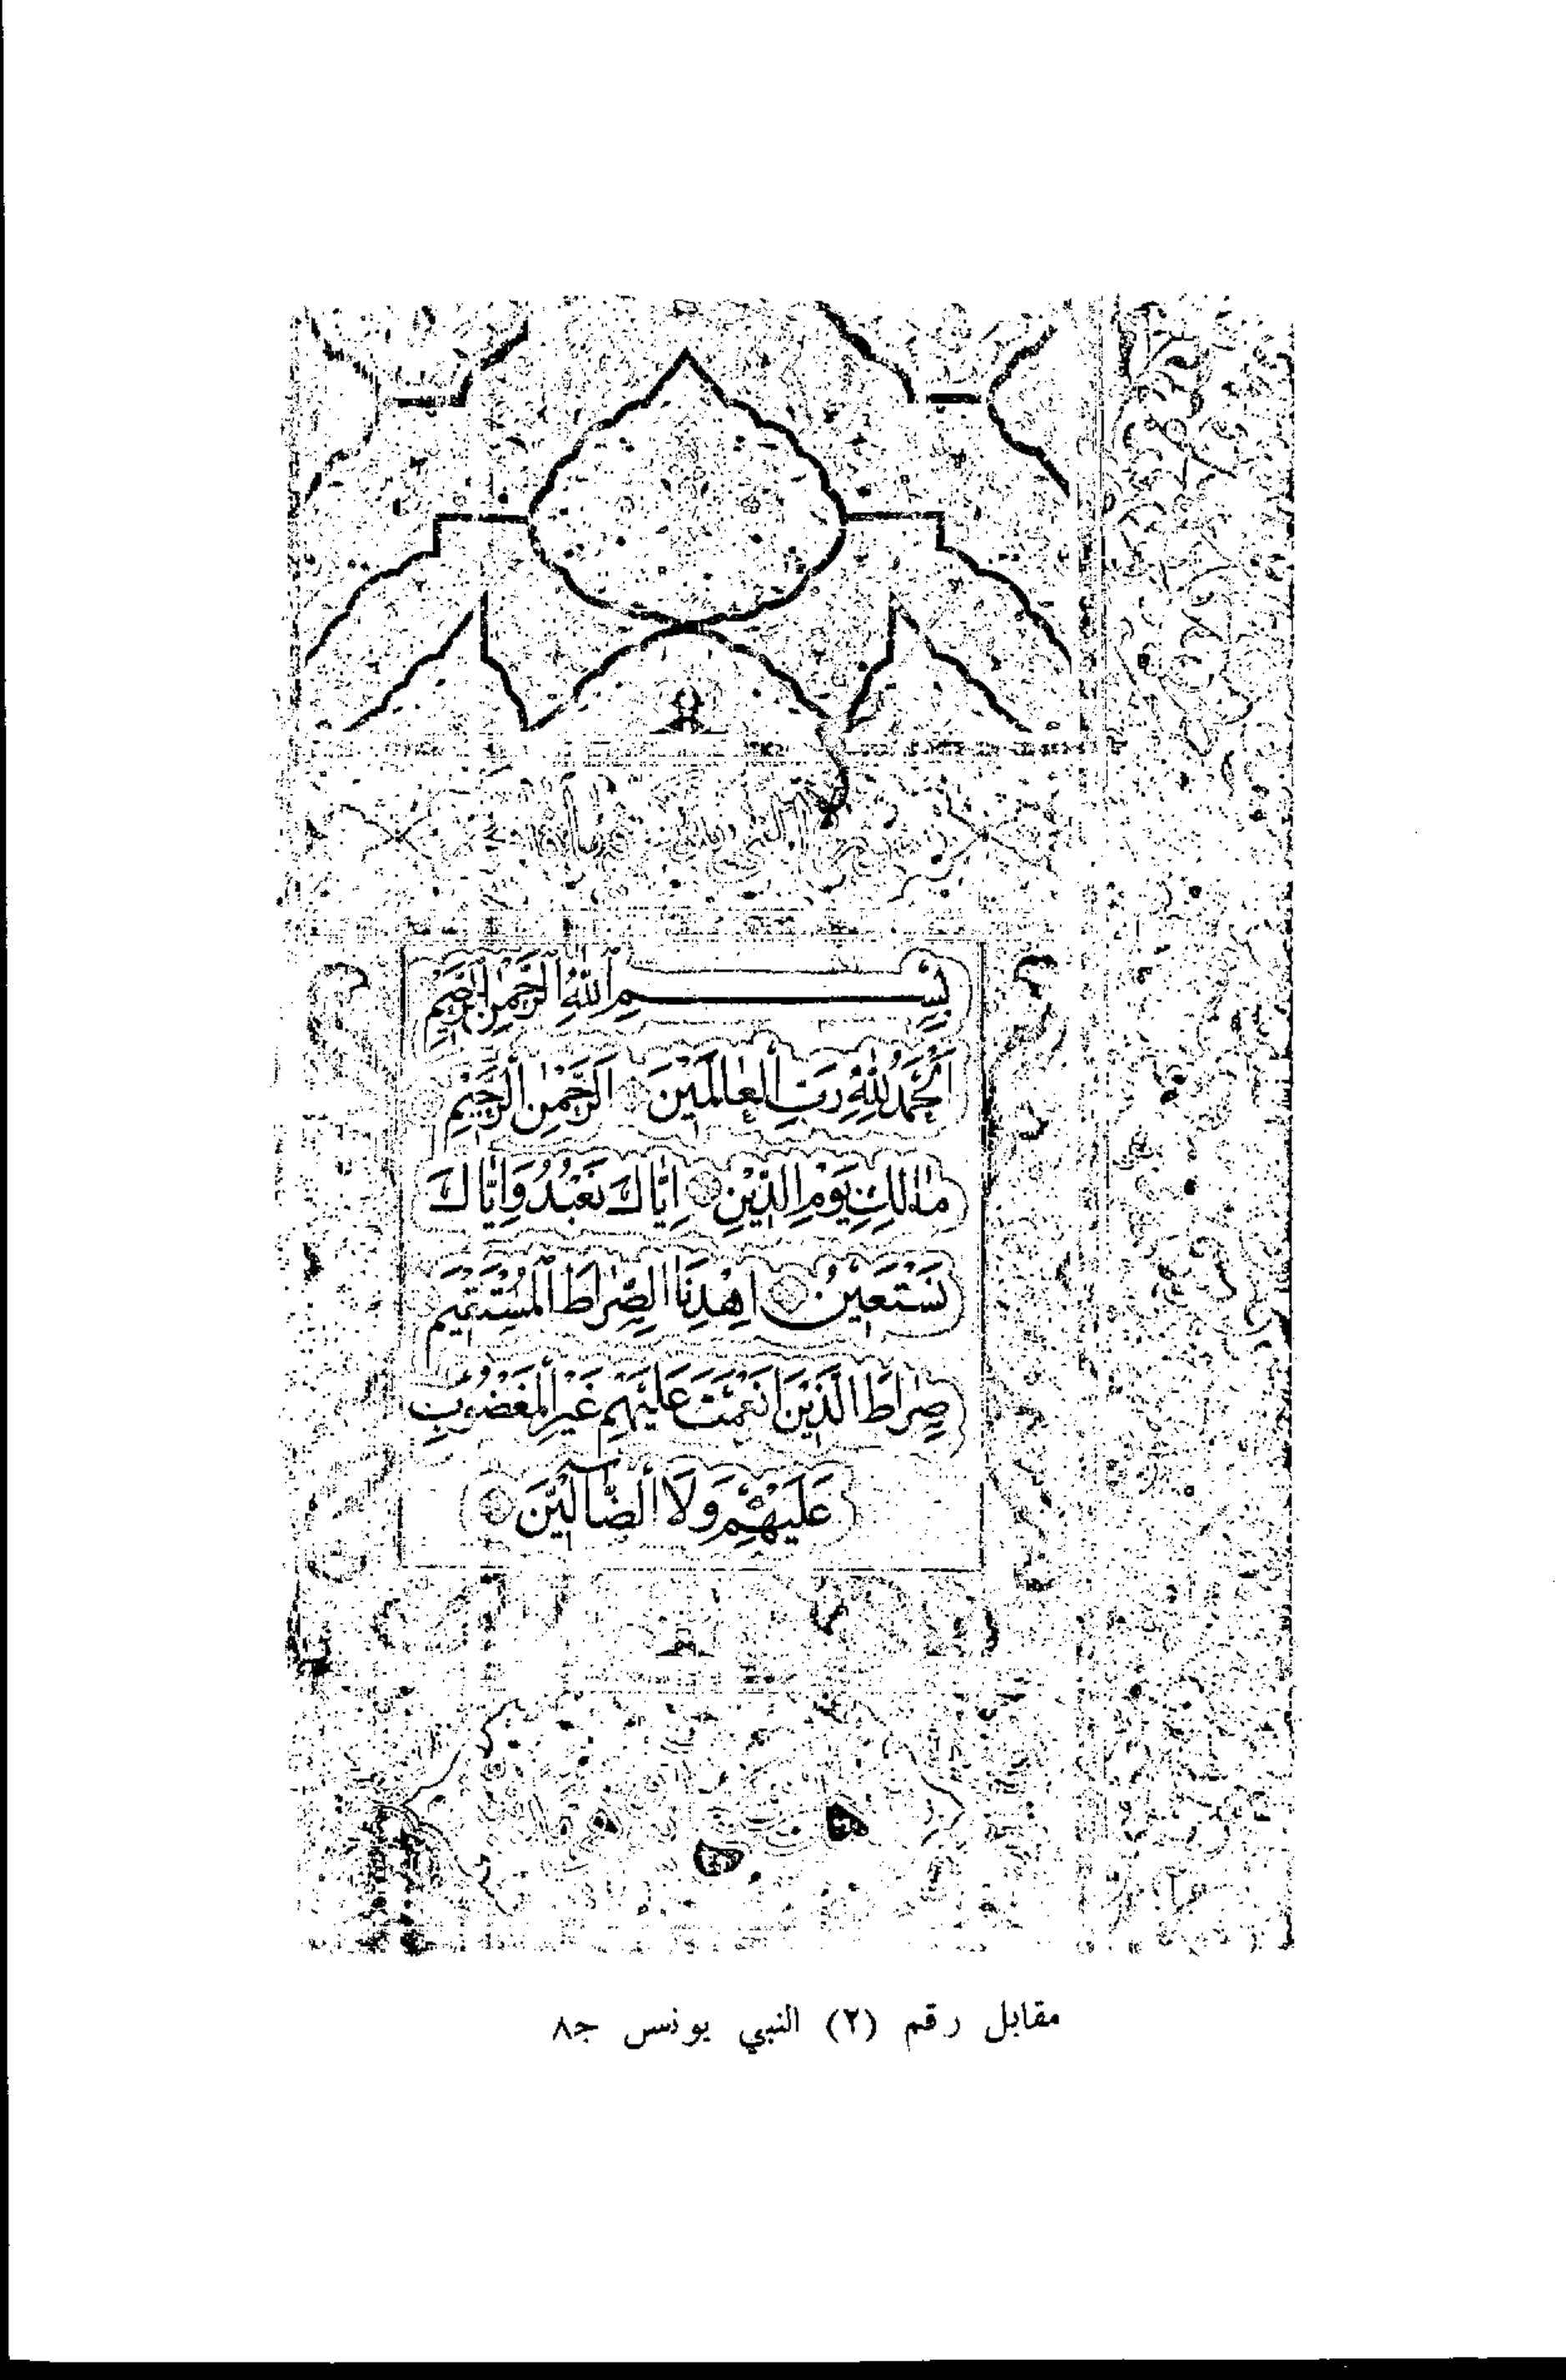 بِسْمِ اللّٰهِ الرَّحْمٰنِ الرَّحِيمِ
اَلْحَمْدُ لِلّٰهِ رَبِّ الْعَالَمِينَ اَلرَّحْمٰنِ الرَّحِيمِ
مَالِكِ يَوْمِ الدِّينِ اِيَّاكَ نَعْبُدُ وَاِيَّاكَ
نَسْتَعِينُ اِهْدِنَا الصِّرَاطَ الْمُسْتَقِيمَ
صِرَاطَ الَّذِينَ اَنْعَمْتَ عَلَيْهِمْ غَيْرِ الْمَغْضُوبِ
عَلَيْهِمْ وَلَا الضَّآلِّينَ
مقابل رقم (٢) النبي يونس ج٨